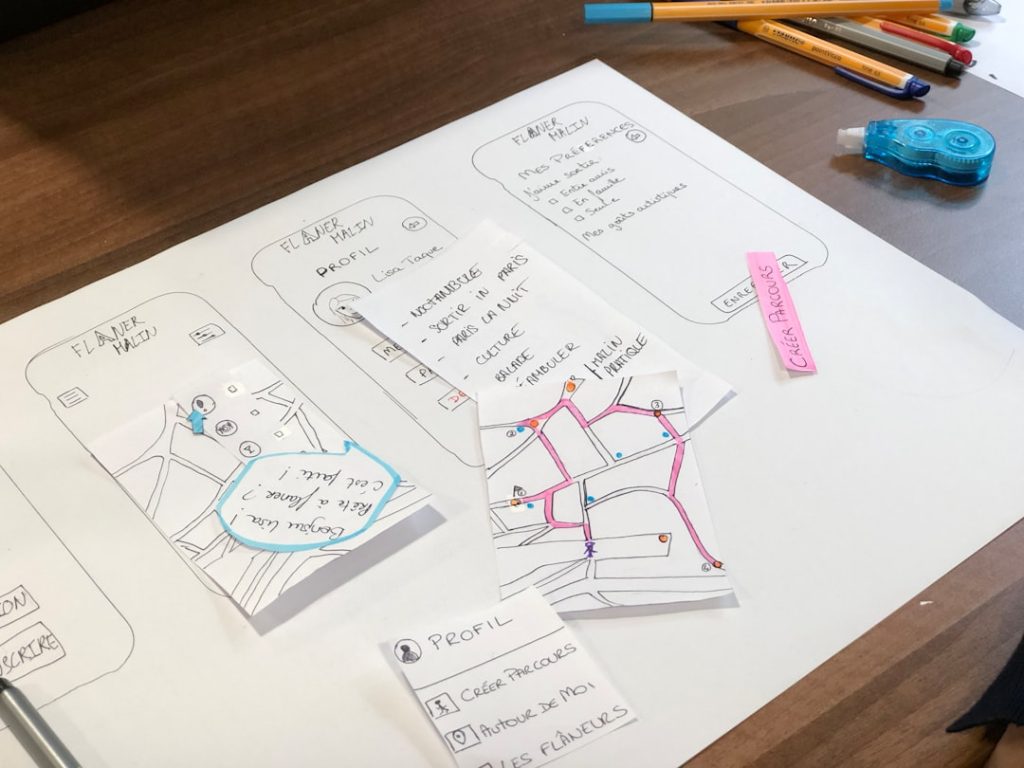 FLÂNER
MALIN
MES PRÉFÉRENCES
J'aime sortir
Entre amis
En famille
Seule
Mes goûts artistiques
CRÉER PARCOURS
FLÂNER
MALIN
PROFIL
Lisa Taque
- NOCTAMBULE
SORTIR IN PARIS
- PARIS LA NUIT
- CULTURE
BALADE
MALIN
PRATIQUE
FLÂNER
MALIN
Bonjour Lisa!
Prête à flaner?
C'est parti!
PROFIL
CRÉER PARCOURS
AUTOUR DE MOI
LES FLÂNEURS